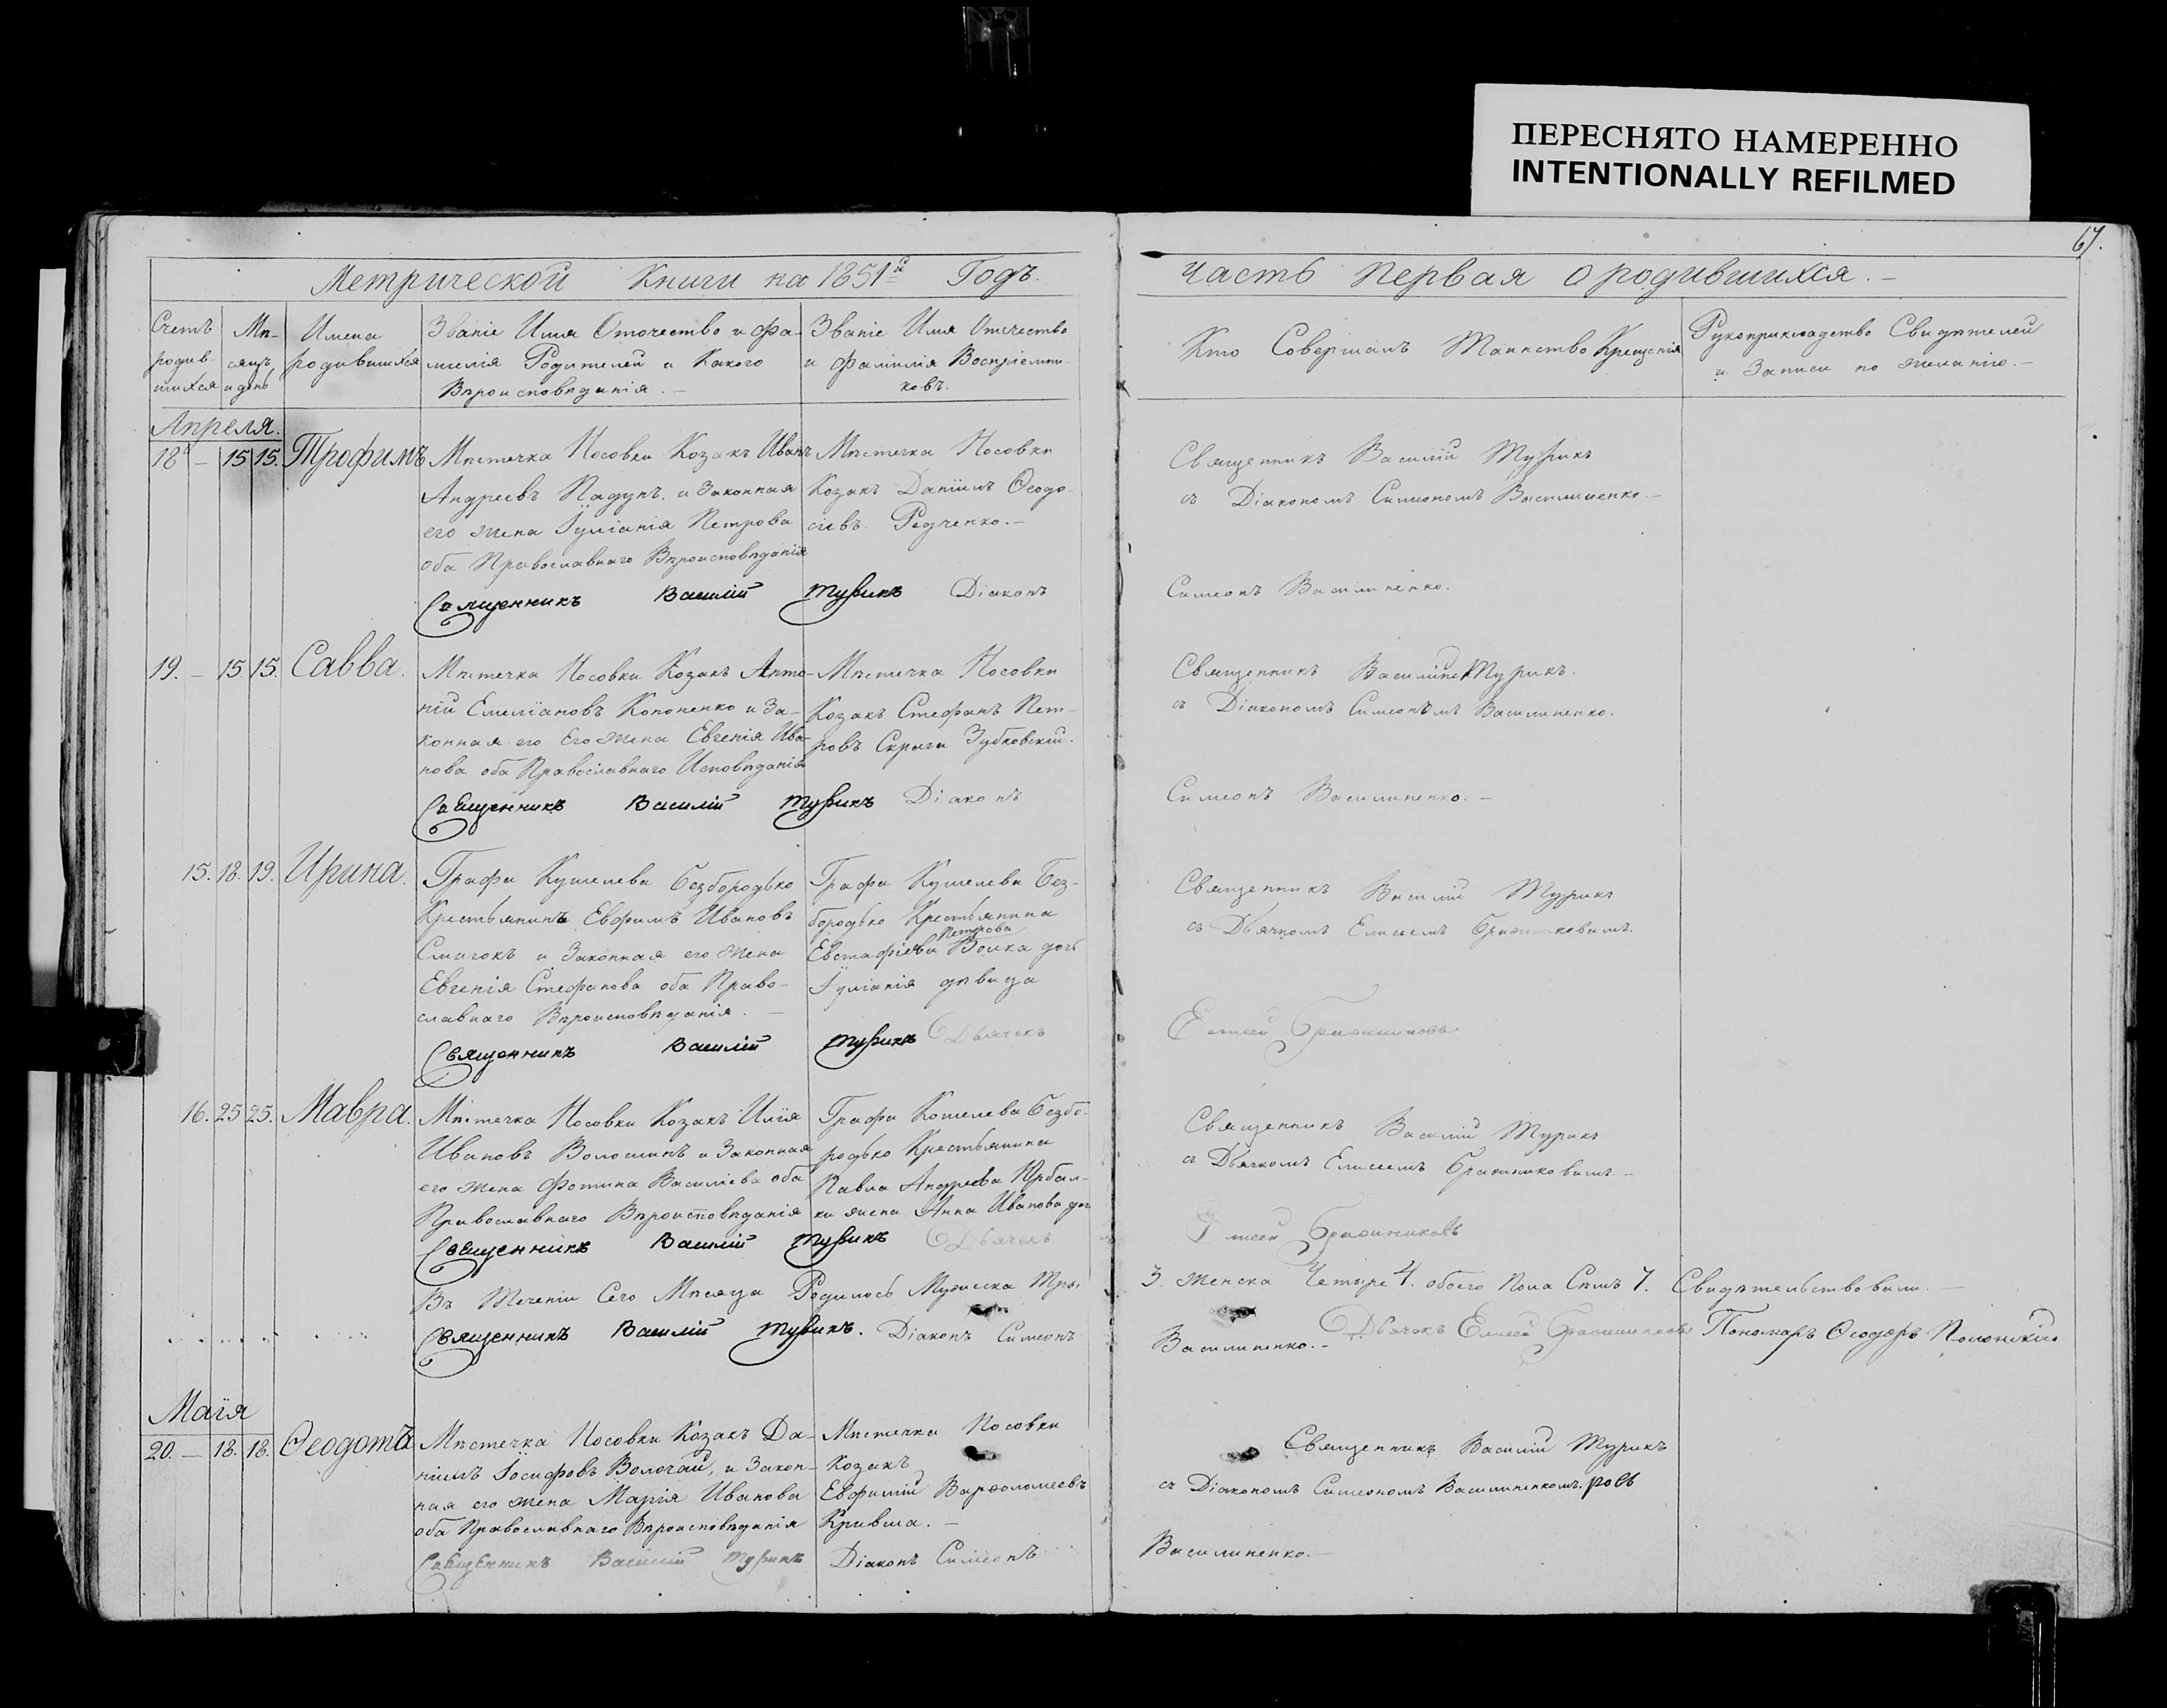 ПЕРЕСНЯТО НАМЕРЕННО
INTENTIONALLY REFILMED
67.
Метрической Книги на 1851й Годъ.
Часть Первая О родившихся.
Счетъ родившихся
Мѣсяцъ и день
Имена родившихся
Званіе Имя Отечество и Фамилія Родителей и Какого Вѣроисповѣданія.
Званіе Имя Отечество и Фамилія Воспріемниковъ.
Кто Совершалъ Таинство Крещенія
Рукоприкладство Свидѣтелей и Записи по желанію.
Апреля.
18 – 15 15. Трофимъ
Мѣстечка Носовки Козакъ Иванъ
Андреевъ Падунъ, и Законная
его жена Іуліанія Петрова
оба Православнаго Вѣроисповѣданія
Мѣстечка Носовки
Козакъ Даніилъ Ѳеодо-
сіевъ Редченко.
Священникъ Василій Турикъ
съ Діакономъ Симеономъ
Священникъ Василій Турикъ Діаконъ
Симеонъ Василиненко.
19. – 15 15. Савва.
Мѣстечка Носовки Козакъ Анто-
ній Емеліановъ Кононенко и За-
конная его Его жена Евгенія Ива-
нова оба Православнаго Исповѣданія
Мѣстечка Носовки
Козакъ Стефанъ Пет-
ровъ Зубковскій.
Священникъ Василій Турикъ.
съ Діакономъ Василиненко.
Священникъ Василій Турикъ Діаконъ
Симеонъ Василиненко.
15. 18. 19. Ирина.
Графа Кушелева Безбородько
Крестьянинъ Евфимъ Ивановъ
и Законная его жена
Евгенія Стефанова оба Право-
славнаго Вѣроисповѣданія.
Графа Кушелева Без-
бородько Крестьянина
Петрова
Евстафіева Волка дочь
Іуліанія дѣвица
Священникъ Василій Турикъ
съ Дьячкомъ Елисеемъ
Священникъ Василій Турикъ Дьячекъ
Елисей
16. 25 25. Мавра.
Мѣстечка Носовки Козакъ Илія
Ивановъ Волошинъ и Законная
его жена Фотина Василіева оба
Православнаго Вѣроисповѣданія
Графа Кошелева Безбо-
родько Крестьянина
Павла Андреева
жена Анна Иванова
Священникъ Василій Турикъ
съ Дьячкомъ Елисеемъ
Священникъ Василій Турикъ Дьячекъ
Въ Теченіи Сего Мѣсяца Родилось Мужеска Три
3. Женска Четыре 4. обоего Пола Семь 7. Свидѣтельствовали.
Священникъ Василій Турикъ. Діаконъ Симеонъ
Василиненко. Дьячекъ Елисей Пономарь Ѳеодоръ Полонскій
Маія
20. – 18. 18. Ѳеодотъ
Мѣстечка Носовки Козакъ Да-
ніилъ Іосифовъ Волочай, и Закон-
ная его жена Марія Иванова
оба Православнаго Вѣроисповѣданія
Мѣстечка Носовки
Козакъ
Евфимій Варѳоломеевъ
Кривша.
Священникъ Василій Турикъ
съ Діакономъ Симеономъ Василиненкомъ.
Священникъ Василій Турикъ Діаконъ Симеонъ
Василиненко.